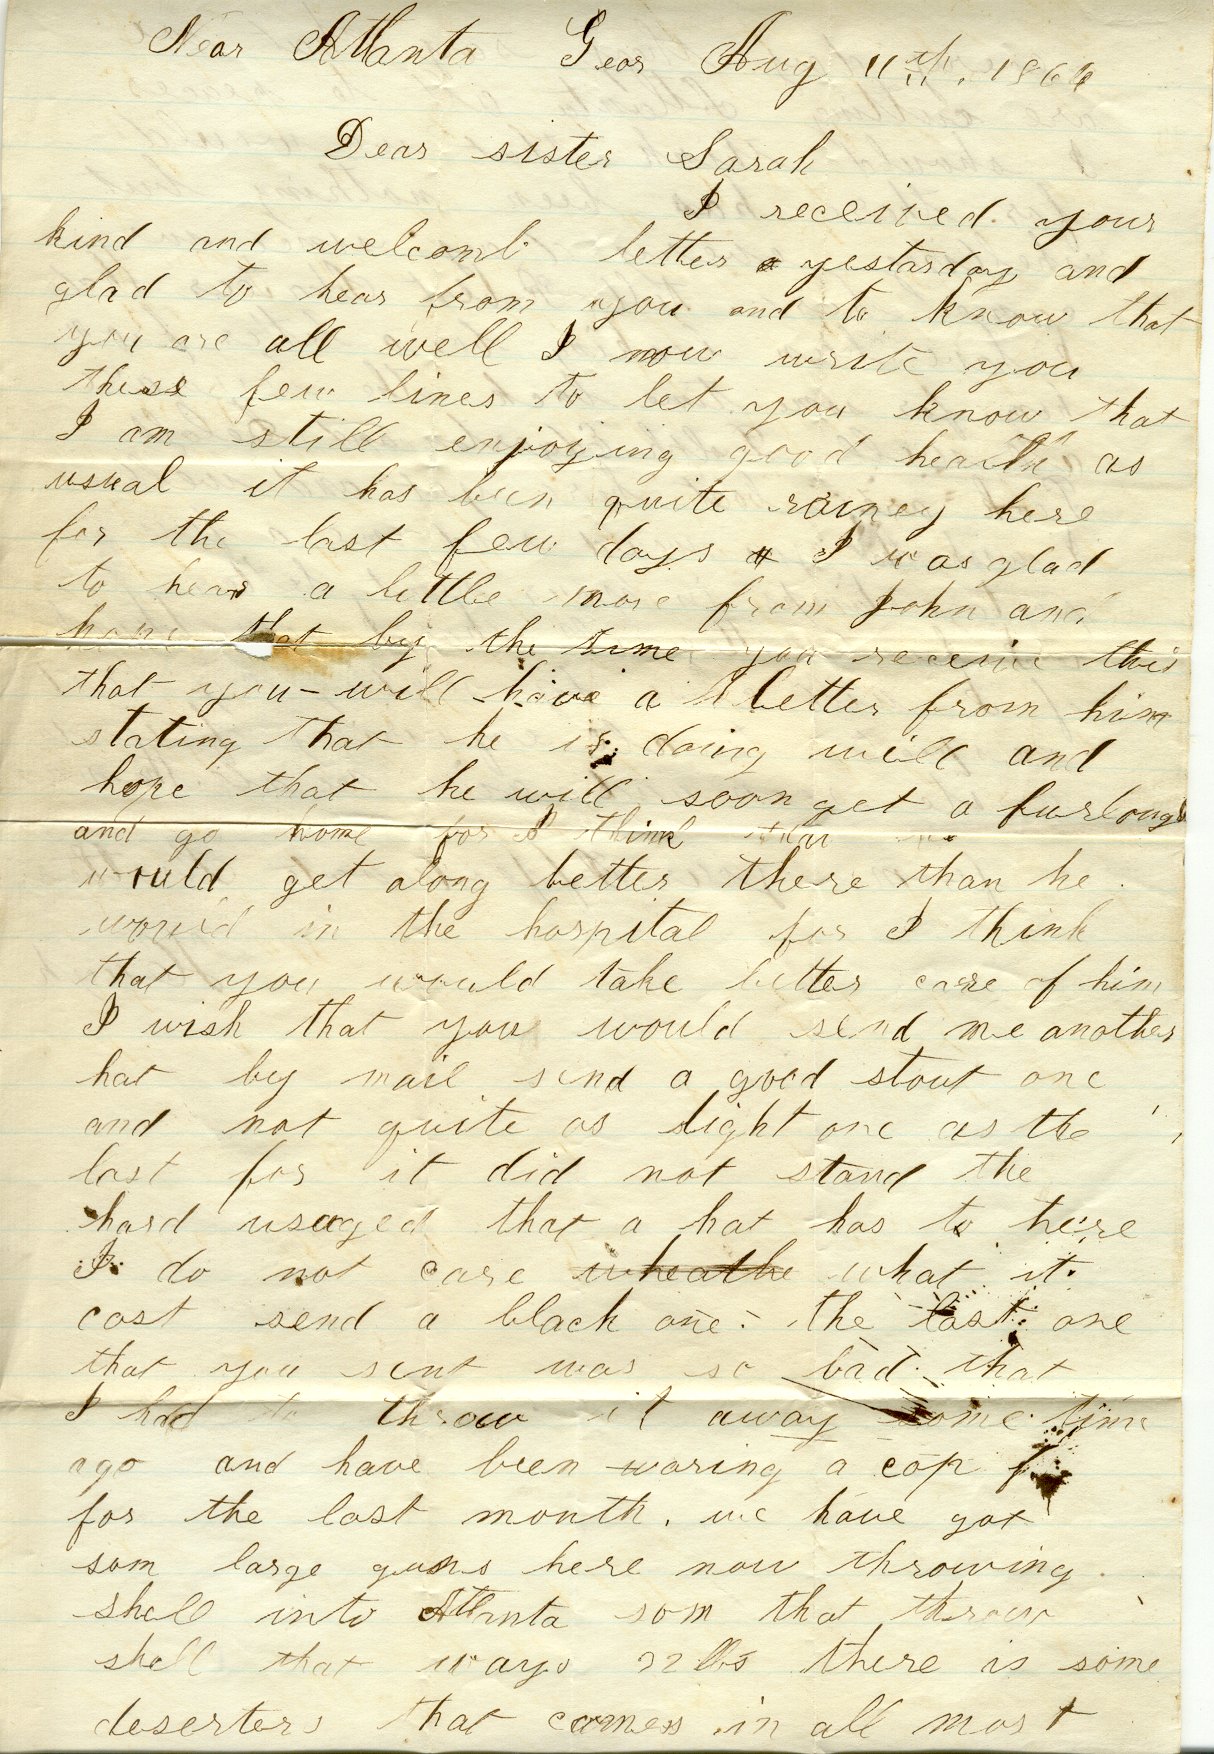 Near Atlanta Geor Aug 11th. 1864
Dear sister Sarah
I received your
kind and welcomb letter yestarday and
glad to hear from you and to know that
you are all well I now write you
these few lines to let you know that
I am still enjoying good health as
usual it has been quite rainey here
for the last few days I was glad
to hear a little more from John and
hope that by the time you receive this
that you will have a letter from him
stating that he is doing well and
hope that he will soon get a furlough
and go home for I think that he
would get along better there than he
would in the hospital for I think
that you would take better care of him
I wish that you would send me another
hat by mail send a good stout one
and not quite as light one as the
last for it did not stand the
hard usaged that a hat has to here
I do not care wheathe what it
cost send a black one. the last one
that you sent was so bad that
I had to throw it away some time
ago and have been waring a cap
for the last month. we have got
som large guns here now throwing
shell into Atlanta som that throw
shell that ways lbs there is some
deserters that comes in all most